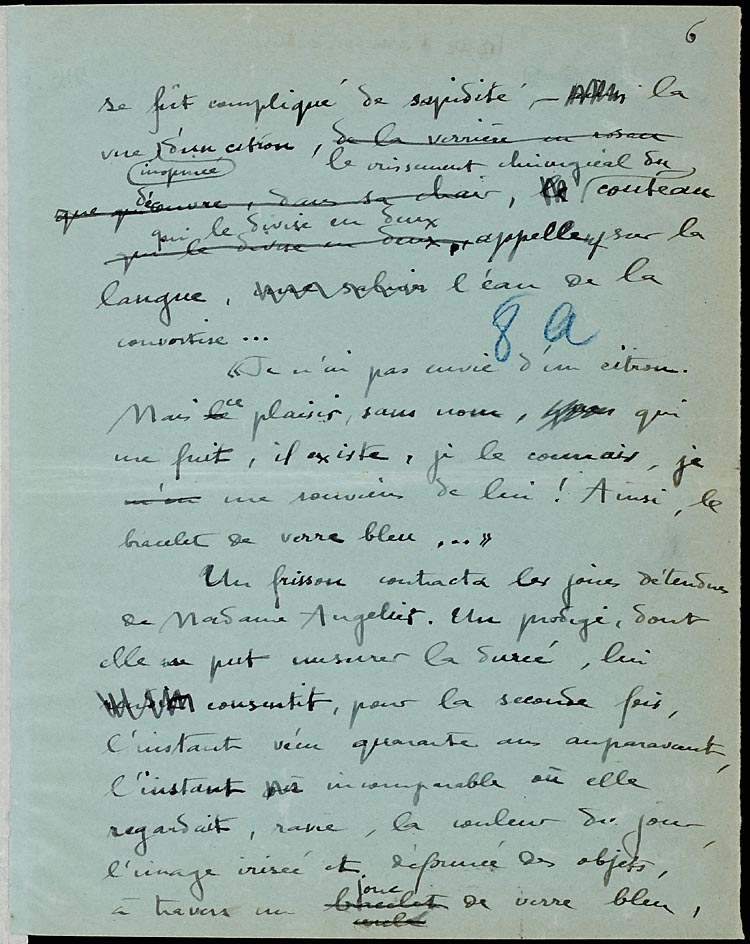 6
se fût compliqué de sapidité, — la
vue d'un citron, de la verrière en rosace
inopiné le crissement chirurgical du
que découvre, dans sa chair, le couteau
qui le divise en deux
qui le divise en deux, appellent sur la
langue, l'eau de la
convoitise...
8 a
« Je n'ai pas envie d'un citron.
Mais le ce plaisir, sans nom, qui
me fuit, il existe, je le connais, je
m'en me souviens de lui ! Ainsi, le
bracelet de verre bleu ... »
Un frisson contracta les joues détendues
de Madame Angelier. Un prodige, dont
elle ne put mesurer la durée, lui
consentit, pour la seconde fois,
l'instant vécu quarante ans auparavant,
l'instant incomparable où elle
regardait, ravie, la couleur du jour,
l'image irisée et déformée des objets,
jonc
à travers un bracelet de verre bleu,